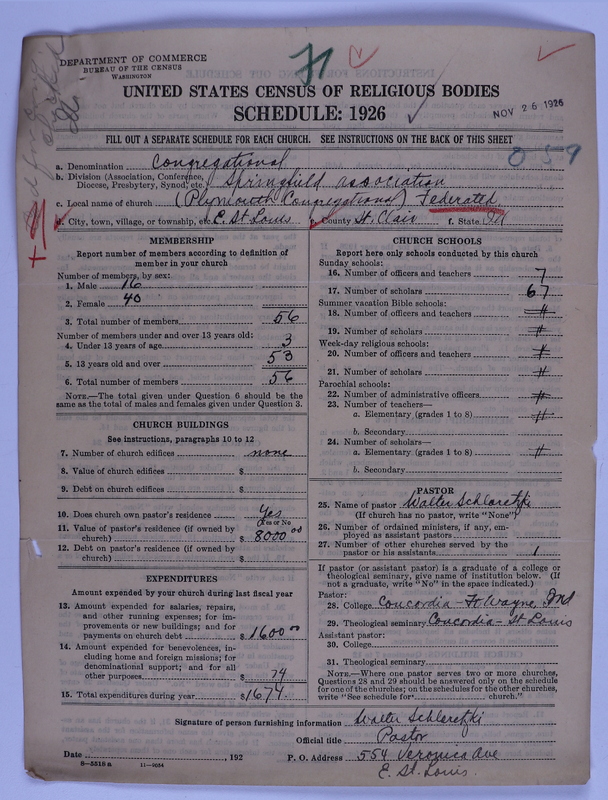 DEPARTMENT OF COMMERCE
BUREAU OF THE CENSUS
WASHINGTON
71
UNITED STATES CENSUS OF RELIGIOUS BODIES
SCHEDULE: 1926
NOV 26 1926
FILL OUT A SEPARATE SCHEDULE FOR EACH CHURCH. SEE INSTRUCTIONS ON THE BACK OF THIS SHEET
859
a. Denomination Congregational
b. Division (Association, Conference, Diocese, Presbytery, Synod, etc.) Springfield association
c. Local name of church (Plymouth Congregational) Federated
d. City, town, village, or township, etc. E. St Louis e. County St. Clair f. State Ill
MEMBERSHIP
Report number of members according to definition of
member in your church
Number of members, by sex:
1. Male 16
2. Female 40
3. Total number of members 56
Number of members under and over 13 years old:
4. Under 13 years of age 3
5. 13 years old and over 53
6. Total number of members 56
NOTE.—The total given under Question 6 should be
same as the total of males and females given under Question 3.
CHURCH BUILDINGS
See instructions, paragraphs 10 to 12
7. Number of church edifices none
8. Value of church edifices $
9. Debt on church edifices $
10. Does church own pastor's residence Yes
(Yes or No)
11. Value of pastor's residence (if owned by
church) $ 8000 00
12. Debt on pastor's residence (if owned by
church) $
EXPENDITURES
Amount expended by your church during last fiscal year
13. Amount expended for salaries, repairs,
and other running expenses; for im-
provements or new buildings; and for
payments on church debt $ 1600 00
14. Amount expended for benevolences, in-
cluding home and foreign missions; for
denominational support; and for all
other purposes $ 74
15. Total expenditures during year $ 1674
CHURCH SCHOOLS
Report here only schools conducted by this church
Sunday schools:
16. Number of officers and teachers 7
17. Number of scholars 67
Summer vacation Bible schools:
18. Number of officers and teachers
19. Number of scholars
Week-day religious schools:
20. Number of officers and teachers
21. Number of scholars
Parochial schools:
22. Number of administrative officers
23. Number of teachers—
a. Elementary (grades 1 to 8)
b. Secondary
24. Number of scholars—
a. Elementary (grades 1 to 8)
b. Secondary
PASTOR
25. Name of pastor Walter Schloretzki
(If church has no pastor, write "None")
26. Number of ordained ministers, if any, em-
ployed as assistant pastors
27. Number of other churches served by the
pastor or his assistants 1
If pastor (or assistant pastor) is a graduate of a college or
theological seminary, give name of institution below. (If
not a graduate, write "No" in the space indicated.)
Pastor:
28. College Concordia - Ft Wayne, Ind
29. Theological seminary Concordia - St Louis
Assistant pastor:
30. College
31. Theological seminary
NOTE.—Where one pastor serves two or more churches,
Questions 28 and 29 should be answered only on the schedule
for one of the churches; on the schedules for the other churches,
write "See schedule for church."
Signature of person furnishing information Walter Schloretzki
Official title Pastor
Date , 192 P. O. Address 554 Veronica Ave
E. St. Louis.
8—5516 a 11—9054